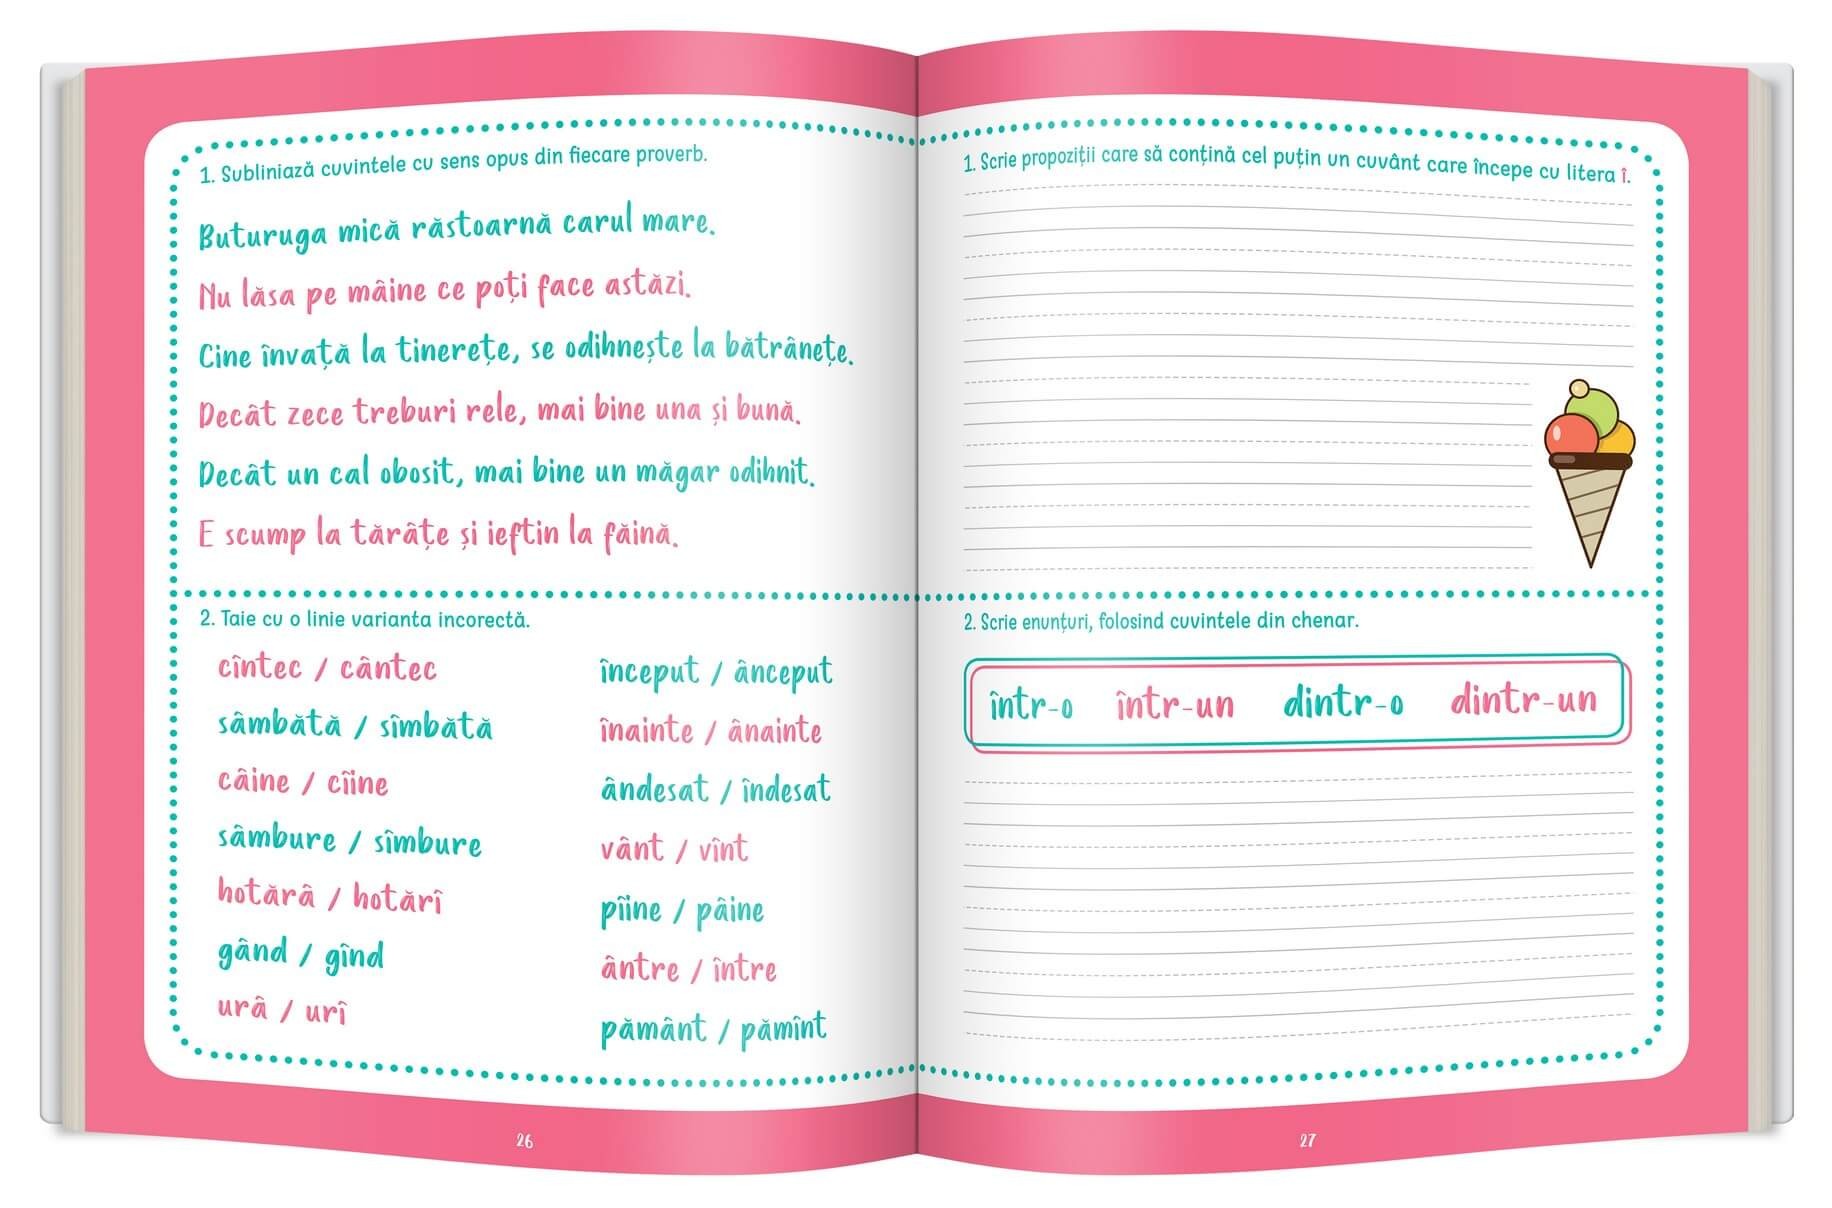 1. Subliniază cuvintele cu sens opus din fiecare proverb.
Buturuga mică răstoarnă carul mare.
Nu lăsa pe mâine ce poți face astăzi.
Cine învață la tinerețe, se odihnește la bătrânețe.
Decât zece treburi rele, mai bine una și bună.
Decât un cal obosit, mai bine un măgar odihnit.
E scump la tărâțe și ieftin la făină.
2. Taie cu o linie varianta incorectă.
cîntec / cântec
sâmbătă / sîmbătă
câine / cîine
sâmbure / sîmbure
hotărâ / hotărî
gând / gînd
urâ / urî
început / ânceput
înainte / ânainte
ândesat / îndesat
vânt / vînt
pîine / pâine
ântre / între
pământ / pămînt
26
1. Scrie propoziții care să conțină cel puțin un cuvânt care începe cu litera î.
2. Scrie enunțuri, folosind cuvintele din chenar.
într-o într-un dintr-o dintr-un
27